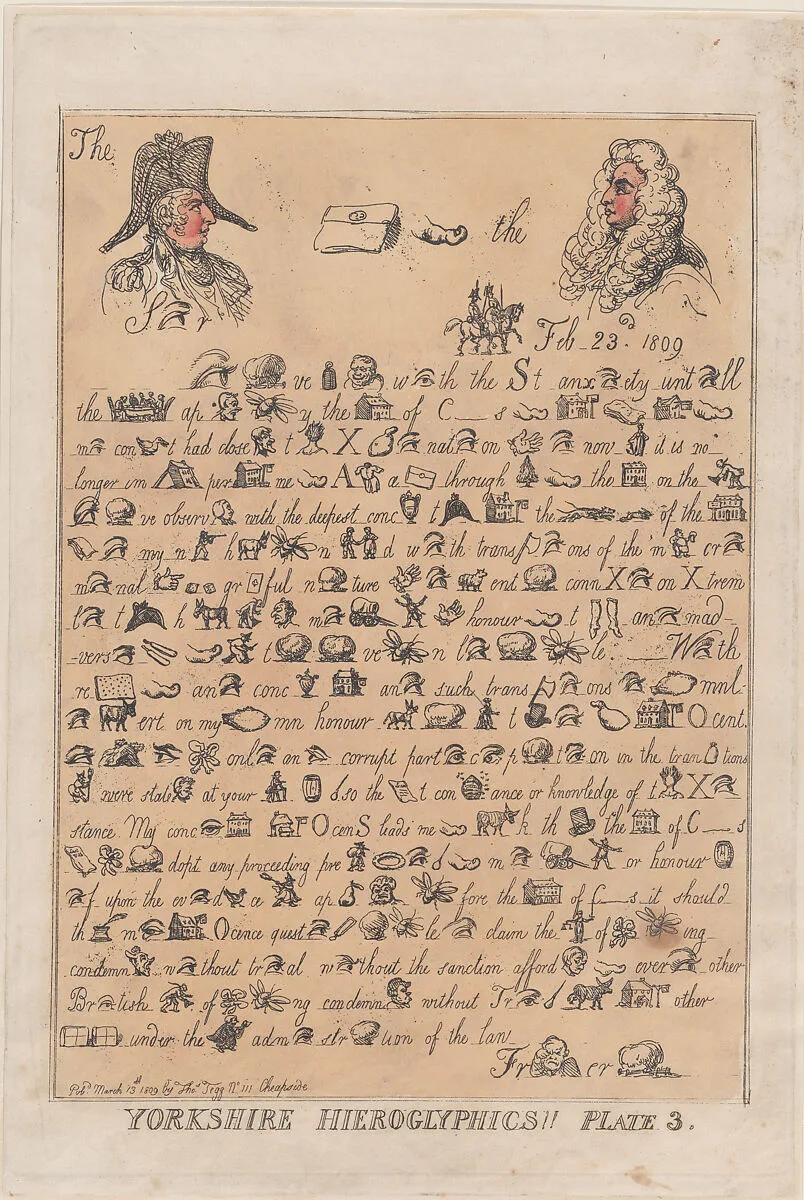 The
the
S r
Feb 23d. 1809
ve w th the St anx ety unt ll
the ap y the of C__s
m con t had close t X nat on now it is no
longer im per me A a through the on the
ve observ with the deepest conc t the of the
my n h n d w th trans ons of the m cr
m nal gr ful n ture ent conn X on Xtrem
l t h m honour t an mad-
-vers t ve n l le. W th
re an conc an such trans ons mnl-
ert on my mn honour t O cent.
onl an corrupt part c p t on in the tran tions
were stat at your so the t con ance or knowledge of t X
stance. My conc OcenS leads me k th the of C__s
dopt any proceeding pre m or honour
f upon the ev d ce ap fore the of C__s it should
th m Ocence quest le claim the of ing
condemn w thout tr al w thout the sanction afford ever other
Br tish of ng condemn without Tr other
under the adm str tion of the law
Fr er
Pubd. March 13th 1809 by Thos Tegg No 111 Cheapside
YORKSHIRE HIEROGLYPHICS!! PLATE 3.